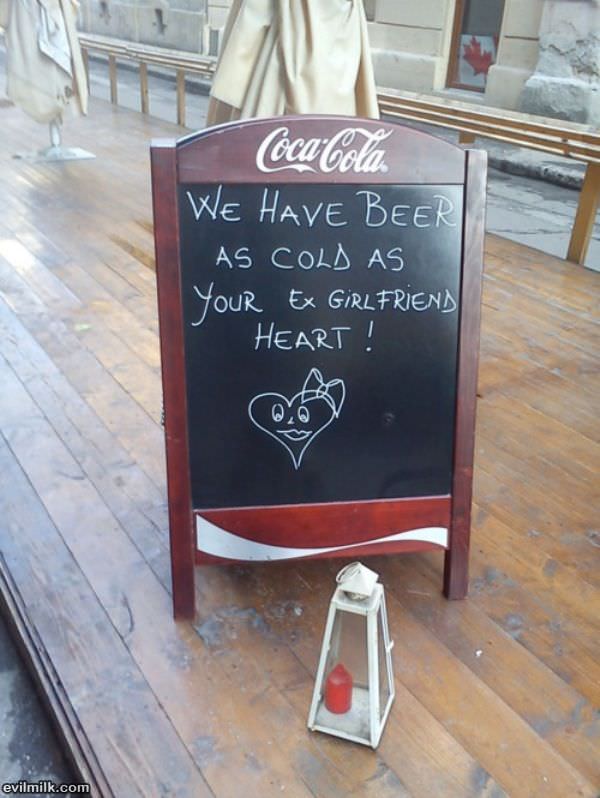 Coca-Cola
WE HAVE BEER
AS COLD AS
YOUR EX GIRLFRIEND
HEART !
evilmilk.com